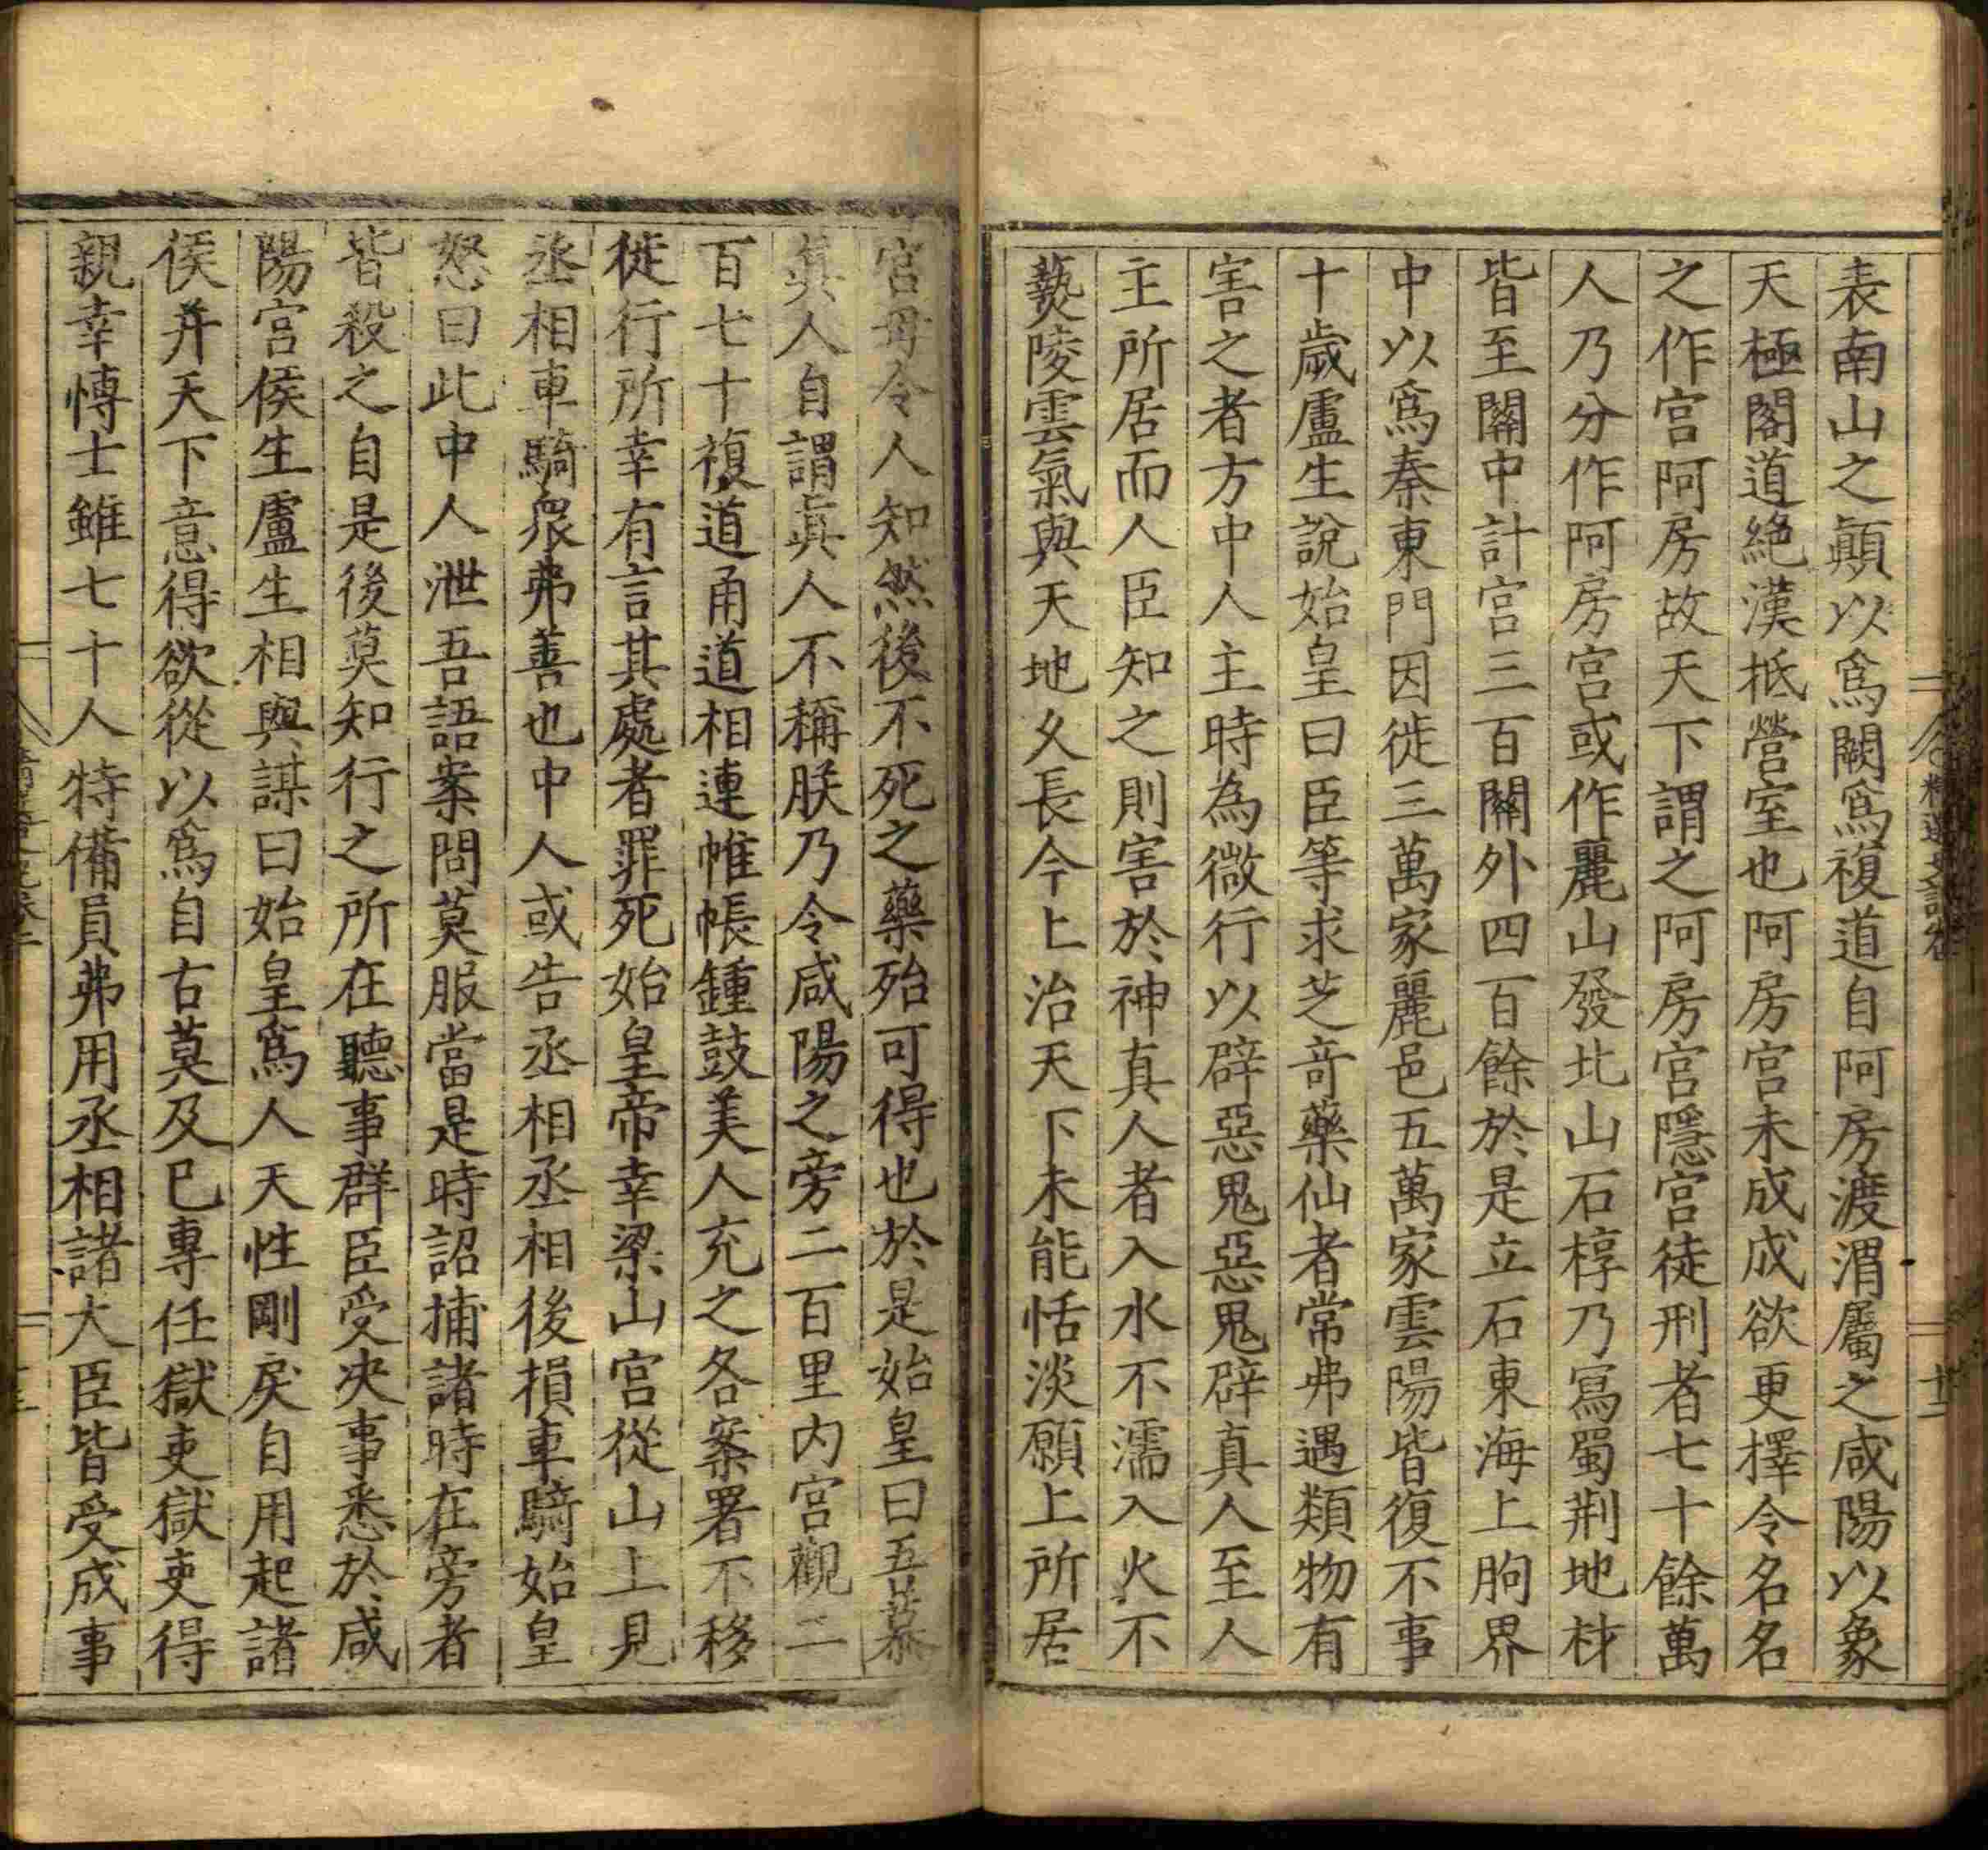 表南山之顚以爲闕爲複道自阿房渡渭屬之咸陽以象
天極閣道絶漢抵營室也阿房宮未成成欲更擇令名名
之作宮阿房故天下謂之阿房宮隱宮徒刑者七十餘萬
人乃分作阿房宮或作麗山發北山石椁乃寫蜀荆地材
皆至關中計宮三百關外四百餘於是立石東海上朐界
中以爲秦東門因徙三萬家麗邑五萬家雲陽皆復不事
十歲盧生說始皇曰臣等求芝奇藥仙者常弗遇類物有
害之者方中人主時為微行以辟惡鬼惡鬼辟真人至人
主所居而人臣知之則害於神真人者入水不濡入火不
爇陵雲氣與天地久長今上治天下未能恬淡願上所居
宮毋令人知然後不死之藥殆可得也於是始皇曰吾慕
眞人自謂眞人不稱朕乃令咸陽之旁二百里內宮觀二
百七十複道甬道相連帷帳鍾鼓美人充之各案署不移
徙行所幸有言其處者罪死始皇帝幸梁山宮從山上見
丞相車騎衆弗善也中人或告丞相丞相後損車騎始皇
怒曰此中人泄吾語案問莫服當是時詔捕諸時在旁者
皆殺之自是後莫知行之所在聽事群臣受决事悉於咸
陽宮侯生盧生相與謀曰始皇爲人天性剛戾自用起諸
侯并天下意得欲從以爲自古莫及已專任獄吏獄吏得
親幸博士雖七十人特備員弗用丞相諸大臣皆受成事